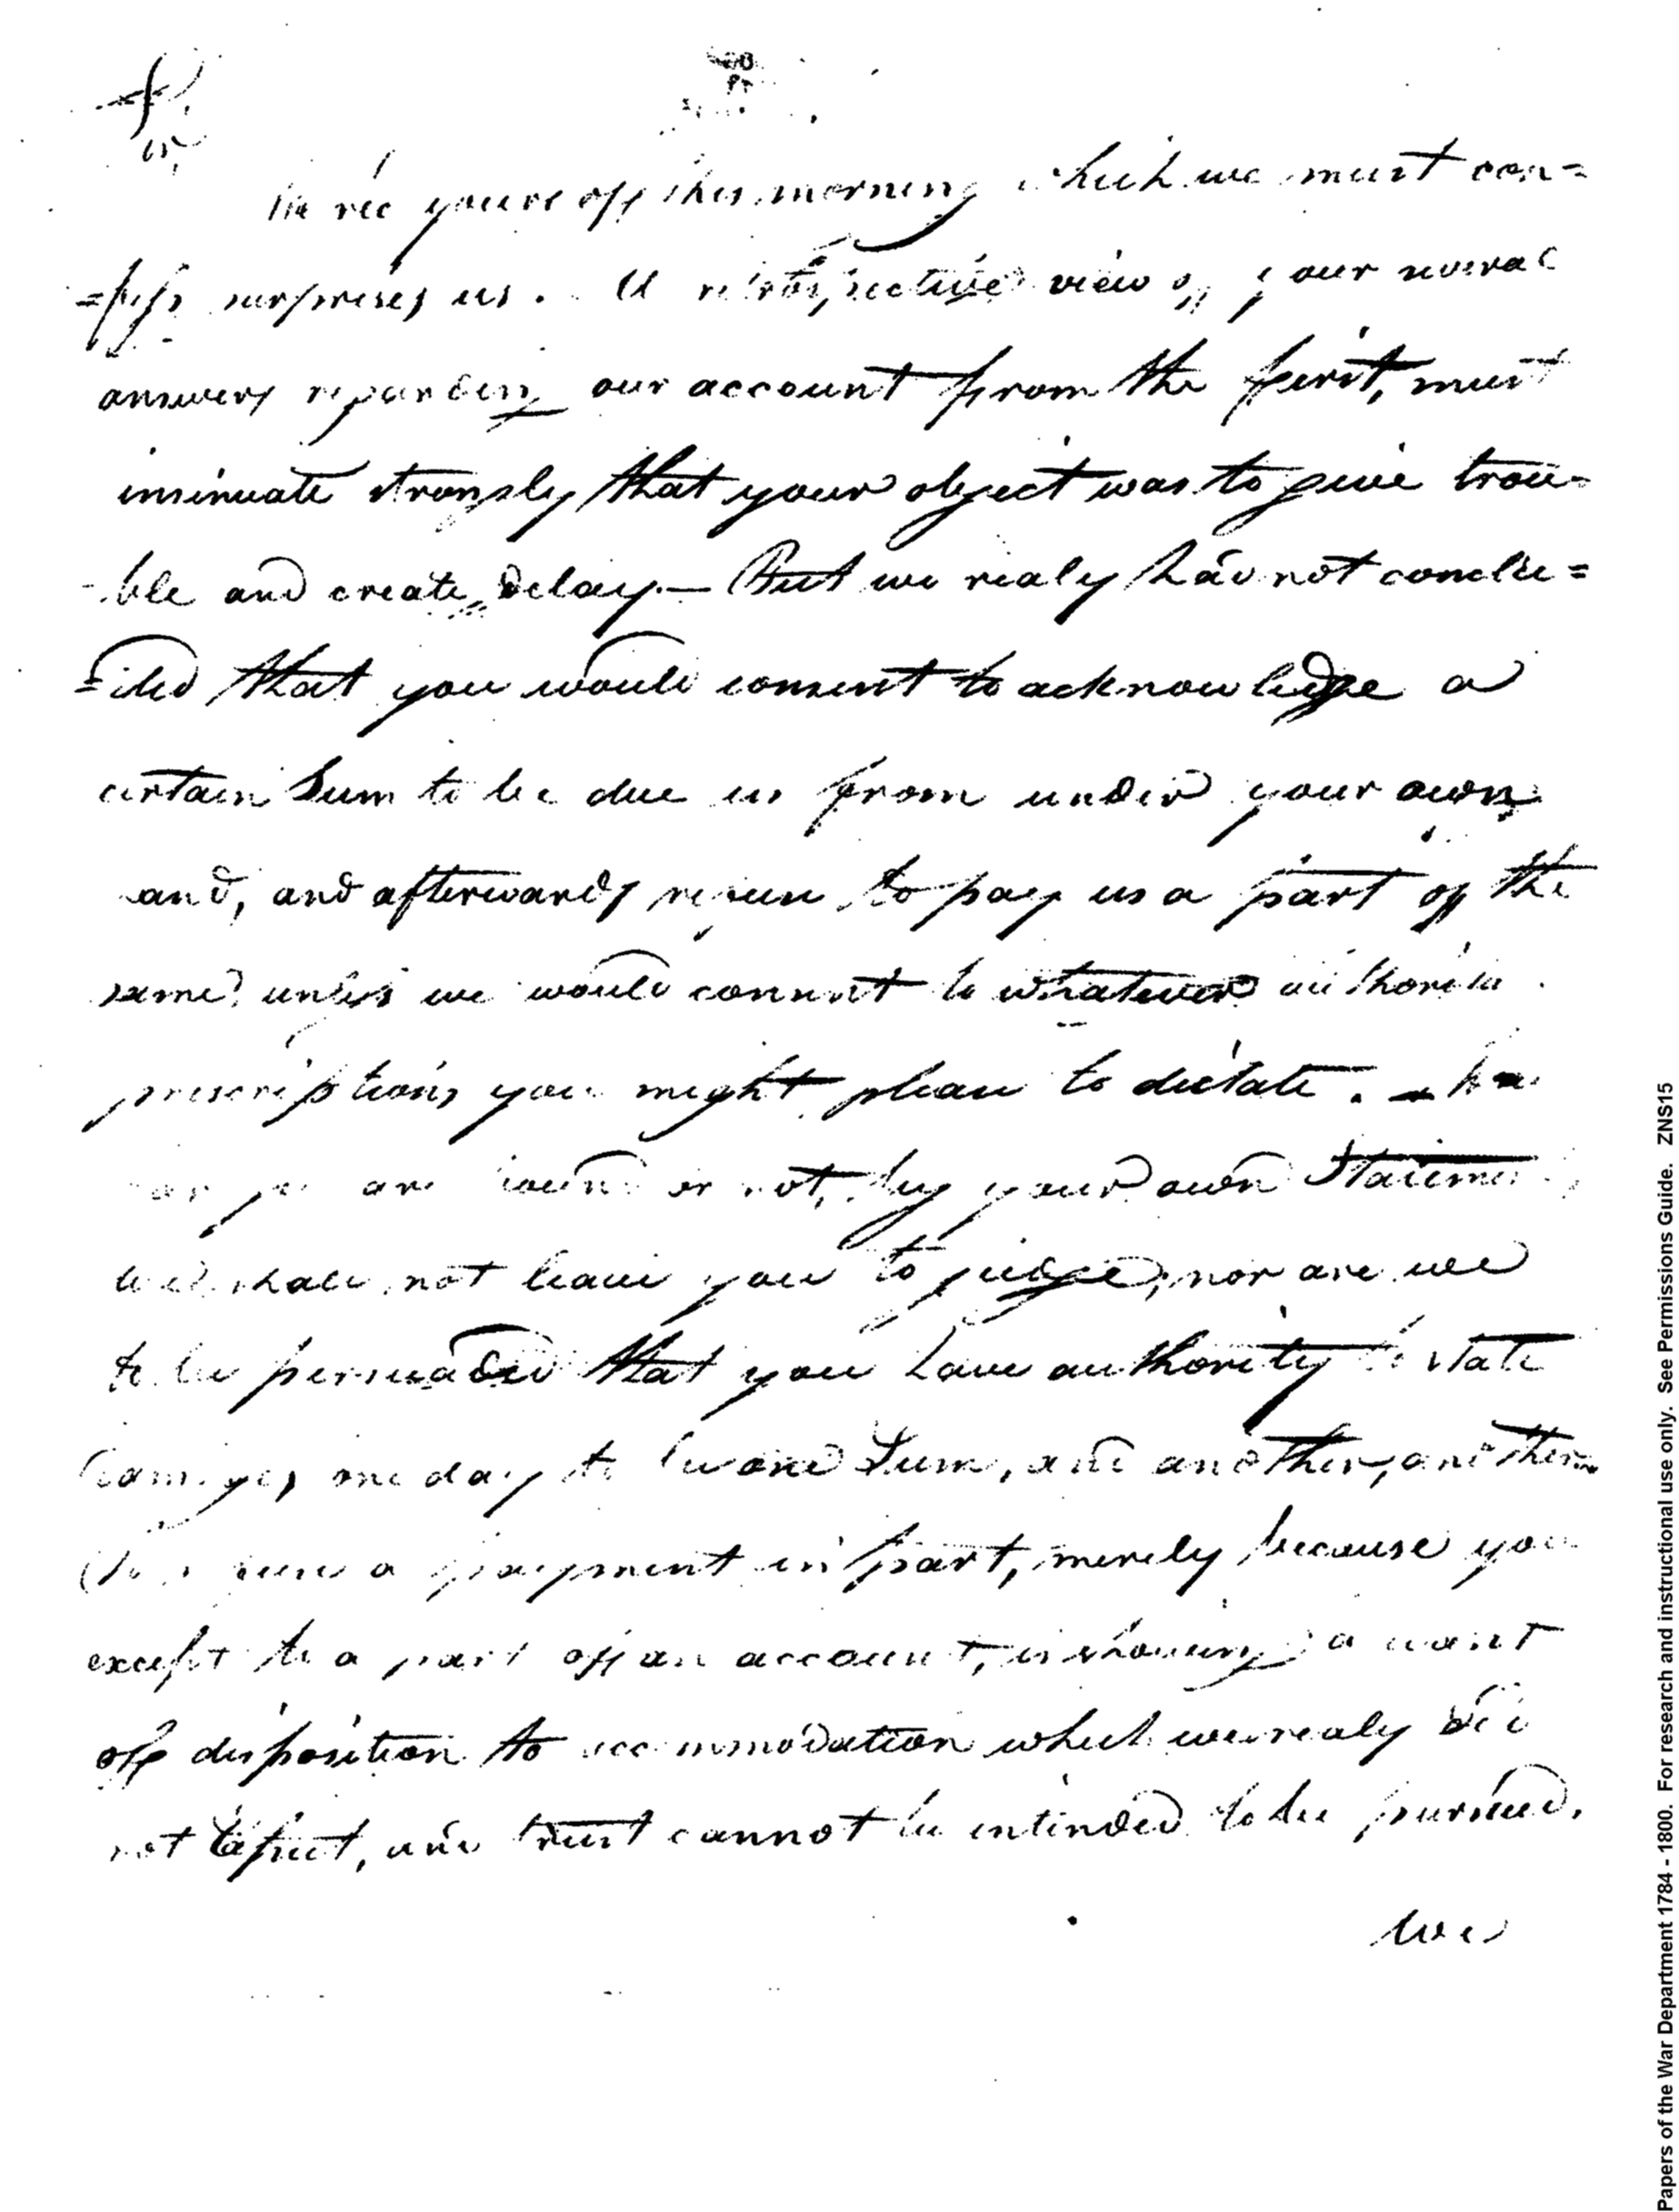 Sir,
We rec yours off this morning which we must con=
=fess surprises us. A retrospective view off your several
answers regarding our account from the first, must
insinuate strongly that your object was to give trou-
-ble and create delay.— But we realy had not conclu=
=ded that you would consent to acknowledge a
certain Sum to be due us from under your own
hand, and afterwards refuse to pay us a part off the
same, unless we would consent to whatever
prescriptions you might please to dictate.
are or not, by your own
we shall not leave you to judge, nor are we
to be persuaded that you have authority to state
damages one day to be one Sum, and another, another
a payment in part, merely because you
except to a part off an account, is showing a want
off disposition to accommodation which we realy did
not Expect, and trust cannot be intended to be pursued.
We
Papers of the War Department 1784 - 1800. For research and instructional use only. See Permissions Guide. ZNS15